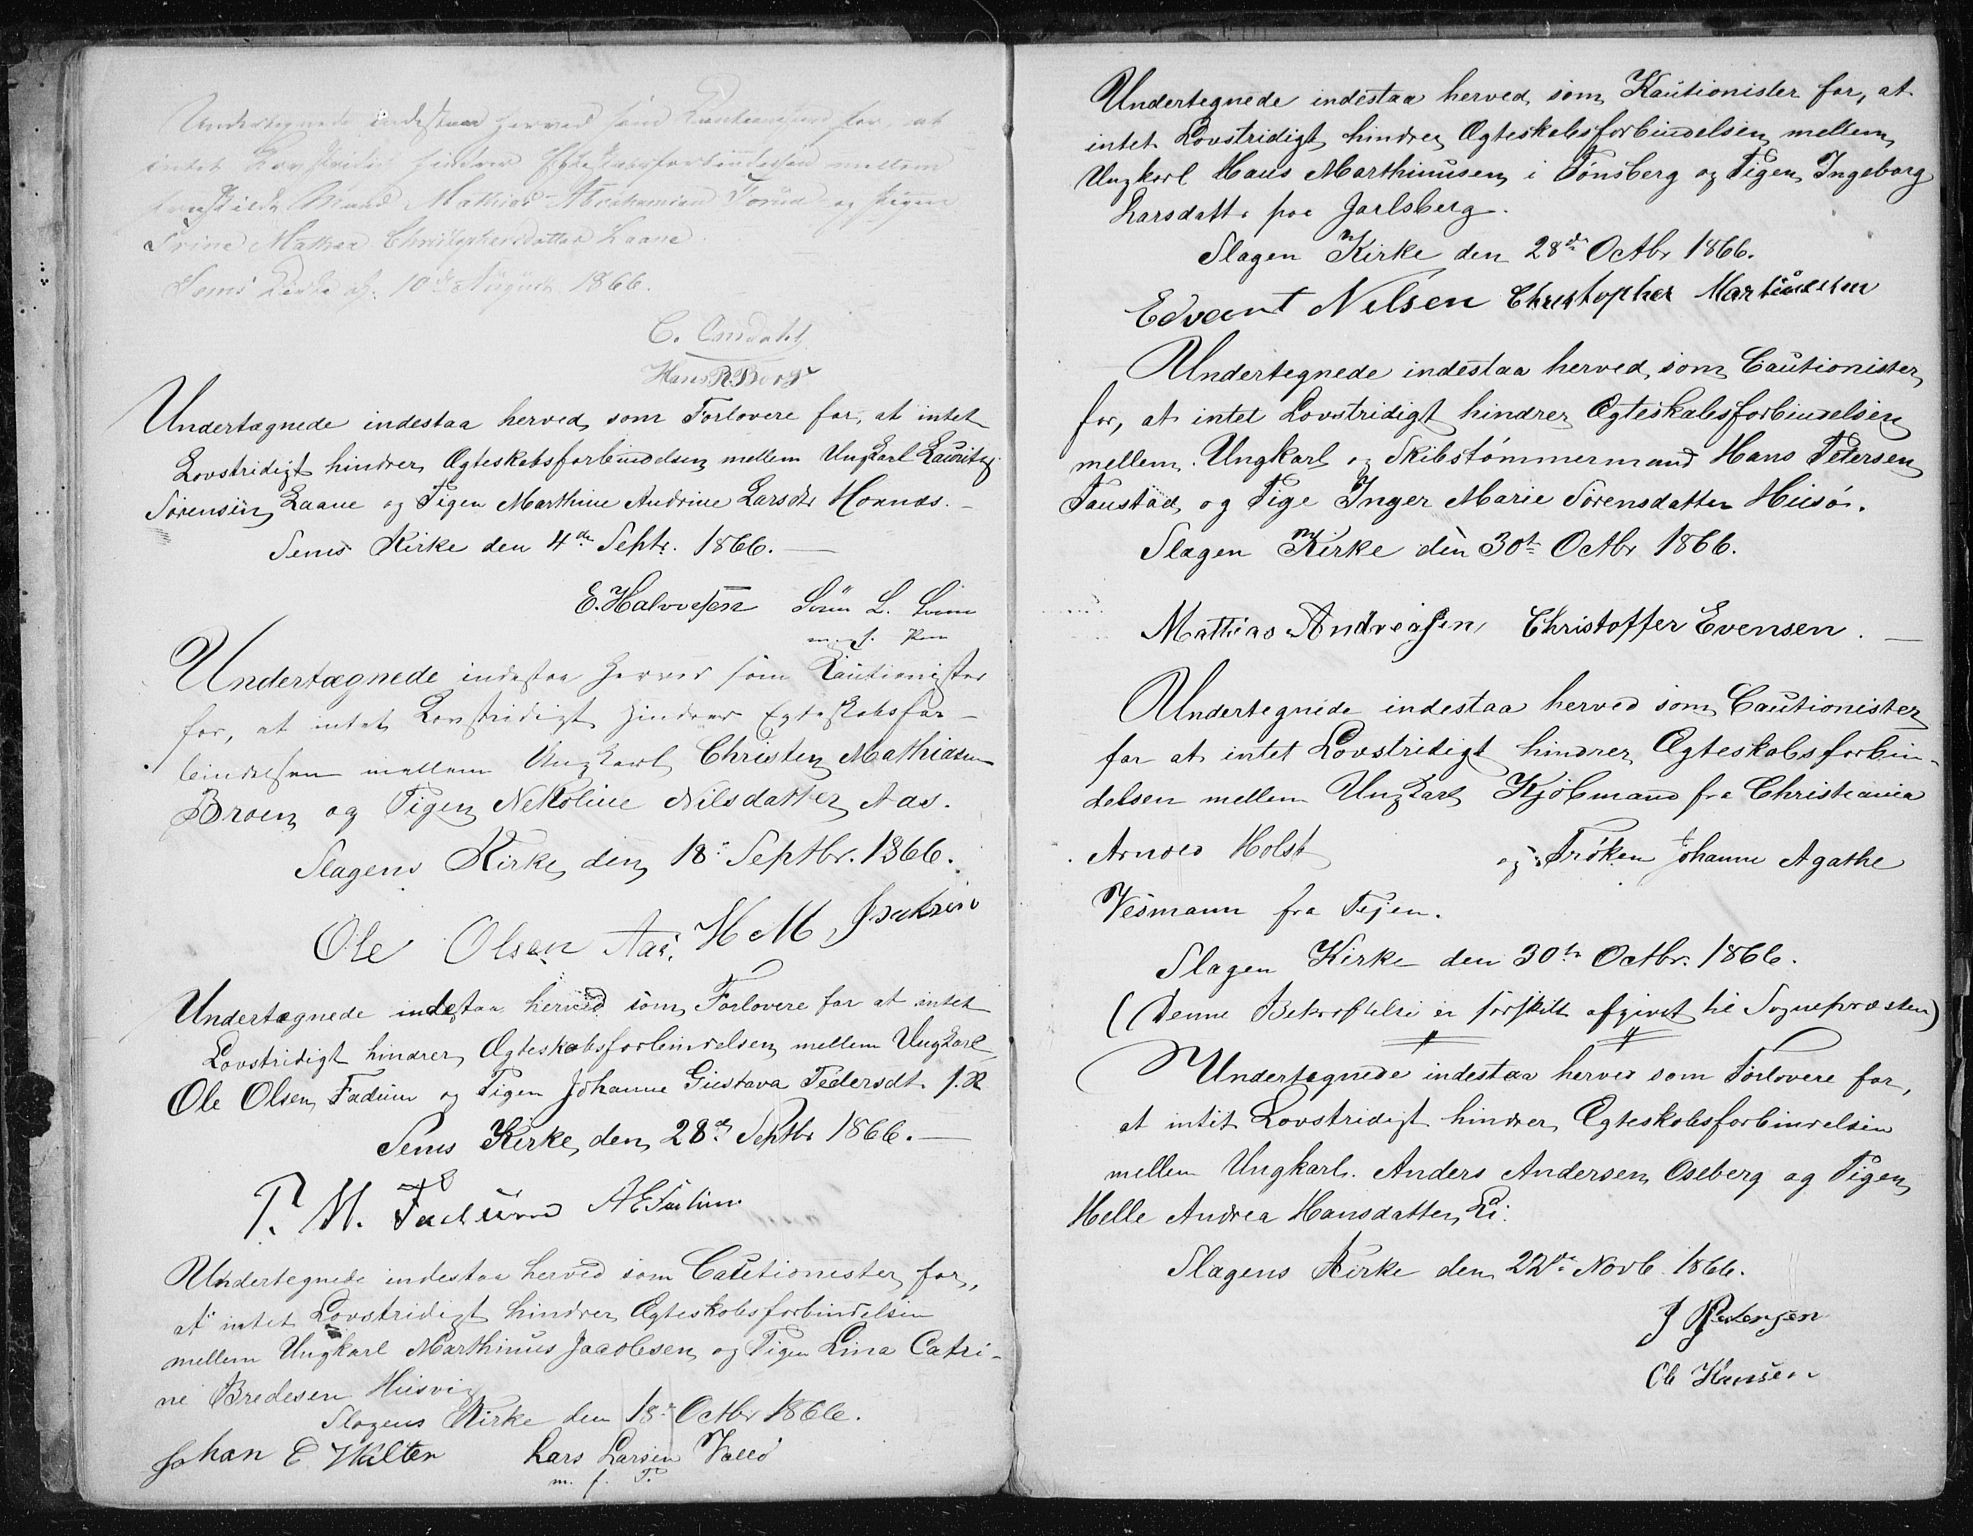 Undertegnede indestaa herved som Kautionister for, at
intet Lovstridigt hindrer Egteskabsforbindelsen mellem
fraskilde Mand Mathias Abrahamsen Torød og Pigen
Trine Mathea Christophersdatter Laane.
Sems Kirke 10de August 1866.
C. Omdahl
Hans R Borge
Undertægnede indestaa herved som Forlovere for, at intet
Lovstridigt hindrer Ægteskabsforbindelsen mellem Ungkarl Lauritz
Sørensen Laane og Pigen Marthine Andrine Larsdtr Hornæs.
Sems Kirke den 4de Septr. 1866.
E. Halvorsen Sørin L.
m. f. Pen
Undertægnede indestaa herved som Kautionister
for, at intet Lovstridigt hindrer Egteskabsfor-
bindelsen mellem Ungkarl Christen Mathiasen
Broen og Pigen Nekoline Nilsdatter Aas.
Slagens Kirke den 18de Septbr. 1866.
Ole Olsen Aas. H M Isaksen
Undertægnede indestaa herved som Forlovere for at intet
Lovstridigt hindrer Ægteskabsforbindelsen mellem Ungkarl
Ole Olsen Fadum og Pigen Johanne Gustava Pedersdt.
Sems Kirke den 28de Septbr 1866.
P. M. Fadum A E Fadum
Undertegnede indestaa herved som Cautionister for,
at intet Lovstridigt hindrer Ægteskabsforbindelsen
mellem Ungkarl Marthinus Jacobsen og Pigen Lina Catri-
ne Bredesen Husvig
Slagens Kirke den 18de Octbr 1866.
Johan C Walter Lars Larsen Vallø
m. f. P.
Undertegnede indestaa herved som Kautionister for, at
intet Lovstridigt hindrer Ægteskabsforbindelsen mellem
Ungkarl Hans Marthinusen i Tønsberg og Pigen Ingeborg
Larsdattr paa Jarlsberg.
Slagen Kirke den 28de Octbr 1866.
Edvart Nilsen Christopher Martinusen
Undertegnede indestaa herved som Cautionister
for, at intet Lovstridigt hindrer Ægteskabsforbindelsen
mellem Ungkarl og Skibstømmermand Hans Petersen
Taustad og Pige Inger Marie Sørensdatter Husø.
Slagen Kirke den 30te Octbr 1866.
Mathias Andreasen Christoffer Evensen.
Undertegnede indestaa herved som Cautionister
for at intet Lovstridigt hindrer Ægteskabsforbin-
delsen mellem Ungkarl Kjøbmand fra Christiania
Arnold Holst og Frøken Johanne Agathe
Vesmann fra Tejen.
Slagen Kirke den 30te Octbr. 1866.
(Denne Bekræftelse er særskilt afgivet til Sognepræsten)
Undertegnede indestaa herved som Forlovere for,
at intet Lovstridigt hindrer Ægteskabsforbindelsen
mellem Ungkarl Anders Andersen Oseberg og Pigen
Helle Andrea Hansdatter Li.
Slagens Kirke den 22de Novb. 1866.
J Pedersen
Ole Hansen